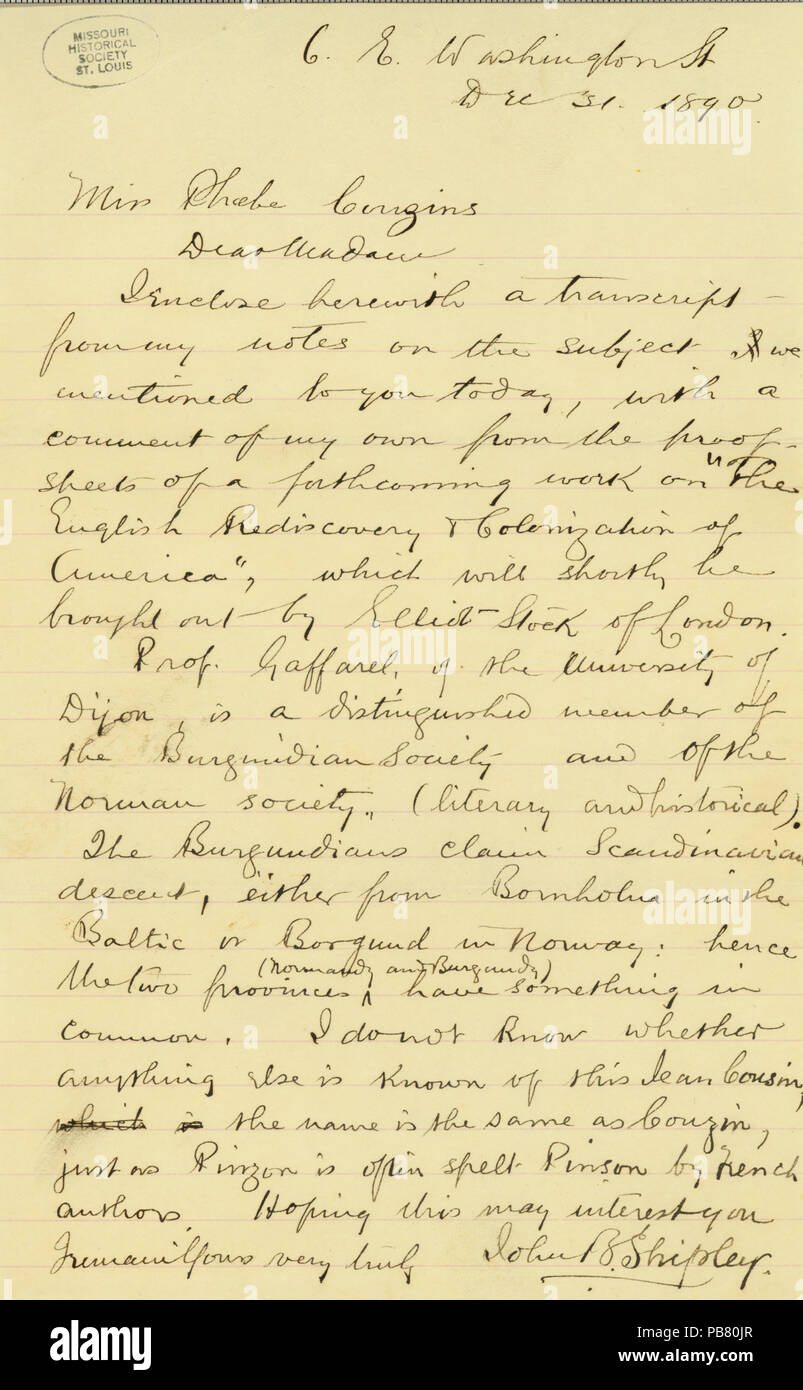 MISSOURI
HISTORICAL
SOCIETY
ST. LOUIS
6. E. Washington St
Dec 31. 1890.
Miss Phœbe Couzins
Dear Madam
I enclose herewith a transcript
from my notes on the subject we
mentioned to you today, with a
comment of my own from the proof-
sheets of a forthcoming work on "The
English Rediscovery & Colonization of
America", which will shortly be
brought out by Elliot Stock of London.
Prof. Gaffarel, of the University of
Dijon, is a distinguished member of
the Burgundian Society and of the
Norman society., (literary and historical).
The Burgundians claim Scandinavian
descent, either from Bornholm in the
Baltic or Borgund in Norway: hence
the two provinces (Normandy and Burgundy) have something in
common. I do not know whether
anything else is known of this Jean Cousin,
which is the name is the same as Couzin,
just as Pinzon is often spelt Pinson by French
authors. Hoping this may interest you
I remain Yours very truly John B. Shipley.
alamy
PB80JR
www.alamy.com